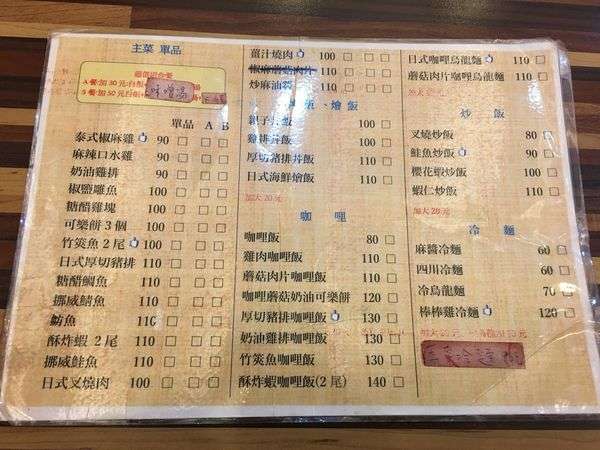 主菜 單品
超值組合餐
味噌湯
單品 A B
泰式椒麻雞 90
麻辣口水雞 90
奶油雞排 90
椒鹽曬魚 100
糖醋雞塊 100
可樂餅 3個 100
竹筴魚 2尾 110
日式厚切豬排 110
糖醋鯛魚 110
挪威鯖魚 110
魴魚 110
酥炸蝦 2尾 110
挪威鮭魚 110
日式叉燒肉 100
薑汁燒肉 100
椒麻蘑菇肉片 100
炒麻油雞 110
丼、燴飯
親子丼飯 100
雞排丼飯 100
厚切豬排丼飯 110
日式海鮮燴飯 110
加大20元
咖哩
咖哩飯 80
雞肉咖哩飯 110
蘑菇肉片咖哩飯 110
咖哩蘑菇奶油可樂餅 120
厚切豬排咖哩飯 130
奶油雞排咖哩飯 130
竹筴魚咖哩飯 130
酥炸蝦咖哩飯(2尾) 140
日式咖哩烏龍麵 110
蘑菇肉片咖哩烏龍麵 110
加大20元
炒飯
叉燒炒飯 80
鮭魚炒飯 90
櫻花蝦炒飯 100
蝦仁炒飯 110
加大20元
冷麵
麻醬冷麵 60
四川冷麵 60
冷烏龍麵 70
棒棒雞冷麵 120